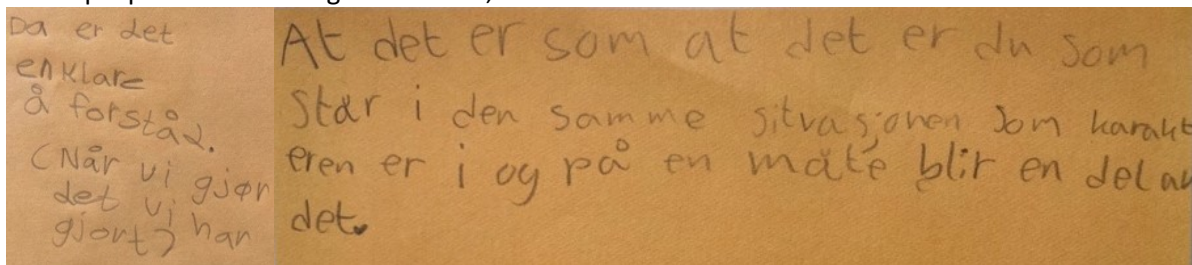 Da er det
enklare
å forstå.
(Når vi gjør
det vi
gjort) har
At det er som at det er du som
står i den samme sitvasjonen som karakt
eren er i og på en måte blir en del av
det.